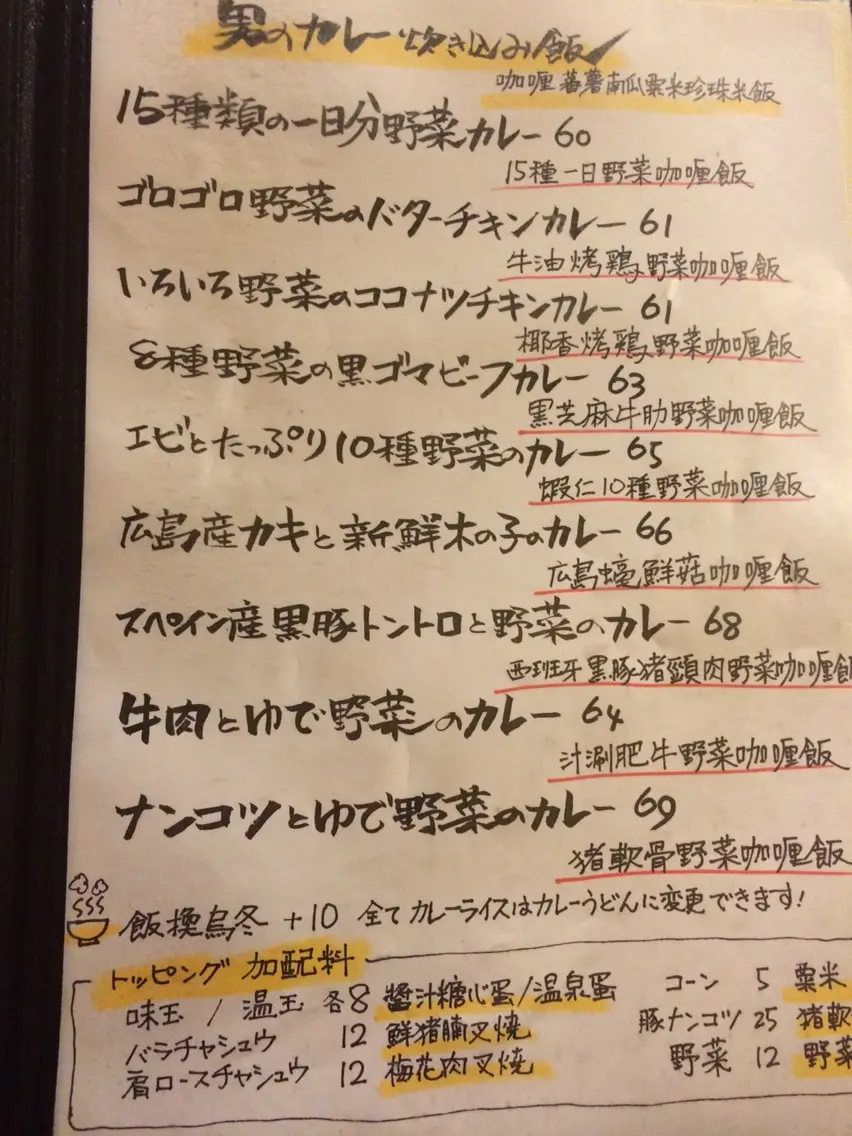 男のカレー炊き込み飯
咖喱蕃薯南瓜粟米珍珠米飯
15種類の一日分野菜カレー 60
15種一日野菜咖喱飯
ゴロゴロ野菜のバターチキンカレー 61
牛油烤鶏野菜咖喱飯
いろいろ野菜のココナツチキンカレー 61
椰香烤鶏野菜咖喱飯
8種野菜の黒ゴマビーフカレー 63
黒芝麻牛肋野菜咖喱飯
エビとたっぷり10種野菜のカレー 65
蝦仁10種野菜咖喱飯
広島産カキと新鮮木の子のカレー 66
広島蠔鮮菇咖喱飯
スペイン産黒豚トントロと野菜のカレー 68
西班牙黒豚猪頸肉野菜咖喱飯
牛肉とゆで野菜のカレー 64
汁涮肥牛野菜咖喱飯
ナンコツとゆで野菜のカレー 69
猪軟骨野菜咖喱飯
飯換烏冬 +10 全てカレーライスはカレーうどんに変更できます!
トッピング 加配料
味玉 / 温玉 各8 醬汁糖心蛋/温泉蛋
バラチャシュウ 12 鮮猪腩叉焼
肩ロースチャシュウ 12 梅花肉叉焼
コーン 5 粟米
豚ナンコツ 25 猪軟
野菜 12 野菜